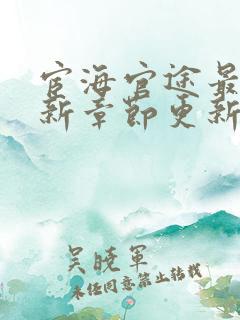 宦海官途最
新章节更新
吴晓军
未经同意禁止转载